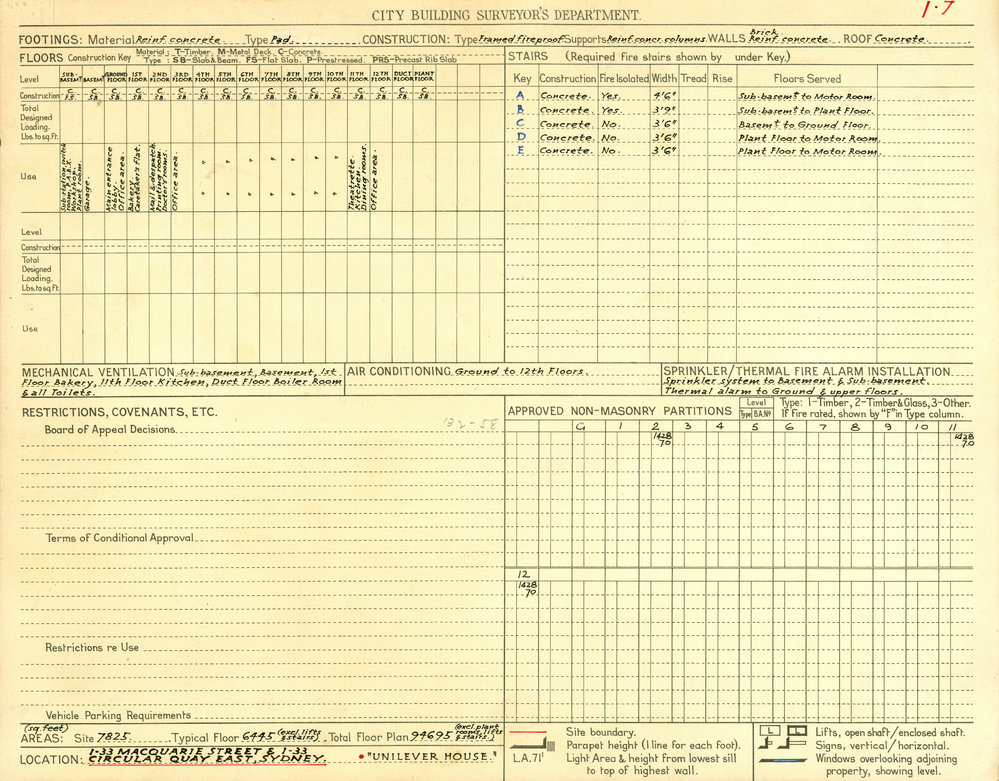 CITY BUILDING SURVEYOR'S DEPARTMENT.
1·7
FOOTINGS: Material Reinf. concrete Type Pad. CONSTRUCTION: Type Framed fireproof Supports Reinf. concr. columns. WALLS Brick Reinf. concrete. ROOF Concrete.
FLOORS Construction Key Material: T-Timber, M-Metal Deck, C-Concrete.
Type: SB-Slab & Beam. FS-Flat Slab. P-Prestressed. PRS-Precast Rib Slab
Level SUB-BASEM'T BASEM'T GROUND FLOOR 1ST FLOOR 2ND FLOOR 3RD FLOOR 4TH FLOOR 5TH FLOOR 6TH FLOOR 7TH FLOOR 8TH FLOOR 9TH FLOOR 10TH FLOOR 11TH FLOOR 12TH FLOOR DUCT FLOOR PLANT FLOOR.
Construction C FS. C SB. C SB. C SB. C SB. C SB. C SB. C SB. C SB. C SB. C SB. C SB. C SB. C SB. C SB. C SB. C SB.
Total
Designed
Loading.
Lbs. to sq. ft.
Use
Substation, switch
room, P.A.B.X.
Workshop.
Plant room.
Garage.
Main entrance
lobby.
Office area.
Bakery.
Caretaker's flat.
Mail & despatch
Printing room.
Doctor's rooms.
Office area.
" " " " " " "
" " " " " " "
Theatrette
Kitchen.
Dining rooms.
Office area.
Level
Construction
Total
Designed
Loading.
Lbs. to sq. ft.
Use
STAIRS (Required fire stairs shown by under Key.)
Key Construction Fire Isolated Width Tread Rise Floors Served
A Concrete. Yes. 4'6" Sub-basem't to Motor Room.
B Concrete. Yes. 3'9" Sub-basem't to Plant Floor.
C Concrete. No. 3'6" Basem't to Ground Floor.
D Concrete. No. 3'6" Plant Floor to Motor Room.
E Concrete. No. 3'6" Plant Floor to Motor Room.
MECHANICAL VENTILATION Sub-basement, Basement, 1st
Floor Bakery, 11th Floor Kitchen, Duct Floor Boiler Room
& all Toilets.
AIR CONDITIONING Ground to 12th Floors.
SPRINKLER/THERMAL FIRE ALARM INSTALLATION
Sprinkler system to Basement & Sub-basement.
Thermal alarm to Ground & upper floors.
RESTRICTIONS, COVENANTS, ETC.
Board of Appeal Decisions.
132-58
Terms of Conditional Approval
Restrictions re Use
Vehicle Parking Requirements
APPROVED NON-MASONRY PARTITIONS Level Type B.A.Nº Type: 1-Timber, 2-Timber & Glass, 3-Other.
If Fire rated, shown by "F" in Type column.
G 1 2 3 4 5 6 7 8 9 10 11
1428 1428
70 70
12
1428
70
(sq. feet)
AREAS: Site 7825. Typical Floor 6445 (excl. lifts & stairs) Total Floor Plan 94695 (excl. plant rooms, lifts & stairs)
LOCATION: 1-33 MACQUARIE STREET & 1-33
CIRCULAR QUAY EAST, SYDNEY. "UNILEVER HOUSE."
Site boundary.
Parapet height (1 line for each foot).
L.A.71' Light Area & height from lowest sill
to top of highest wall.
L Lifts, open shaft/enclosed shaft.
Signs, vertical/horizontal.
Windows overlooking adjoining
property, showing level.